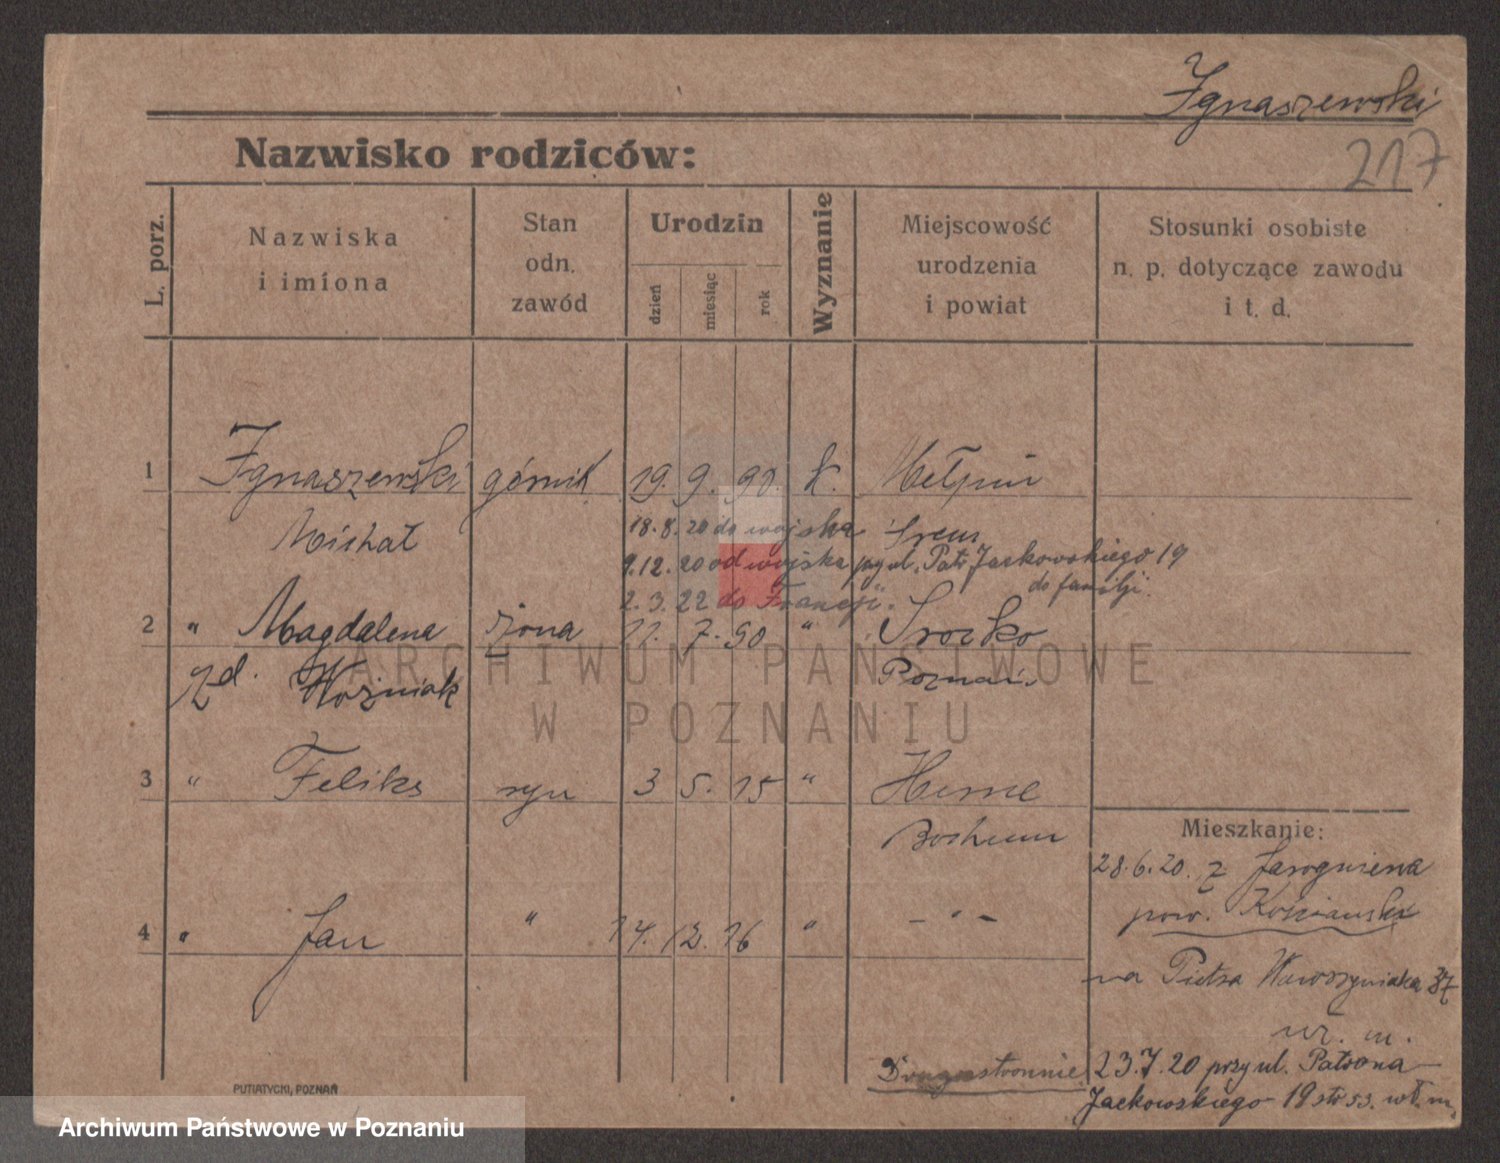 Ignaszewski
217
Nazwisko rodziców:
L. porz.
Nazwiska
i imiona
Stan
odn.
zawód
Urodzin
dzień
miesiąc
rok
Wyznanie
Miejscowość
urodzenia
i powiat
Stosunki osobiste
n. p. dotyczące zawodu
i t. d.
1 Ignaszewski górnik 19. 9. 90 k. Mełpin
Michał 18.8.20 do wojska Śrem
9.12.20 od wojska przy ul. Patr. Jackowskiego 19
do familji.
2.3.22 do Francji.
2 " Magdalena żona 11. 7. 90 " Srocko
zd. Woźniak Poznań
ARCHIWUM PAŃSTWOWE
W POZNANIU
3 " Feliks syn 3 5. 15 " Herne
Bochum
Mieszkanie:
28.6.20. z Jarogniewa
pow. Kościański
4 " Jan " 14. 12. 16 " - " -
na Piotra Wawrzyniaka 37
23.7.20 przy ul. Patrona
Drugostronnie
Jackowskiego 19 str 53. wł. m.
PUTIATYCKI, POZNAŃ
Archiwum Państwowe w Poznaniu